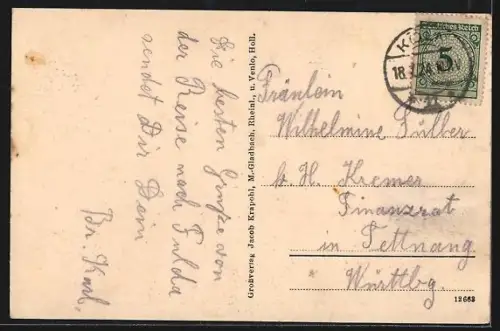 Die besten Grüße von
der Reise nach Fulda
sendet Dir Dein
Br. Karl.
Großverlag Jacob Krapohl, M.-Gladbach, Rheinl., u. Venlo, Holl.
Deutsches Reich
5
KÖLN
18.
24
Fräulein
Wilhelmine Sülber
b. H. Kremer
Finanzrat
in Tettnang
Württbg.
12668